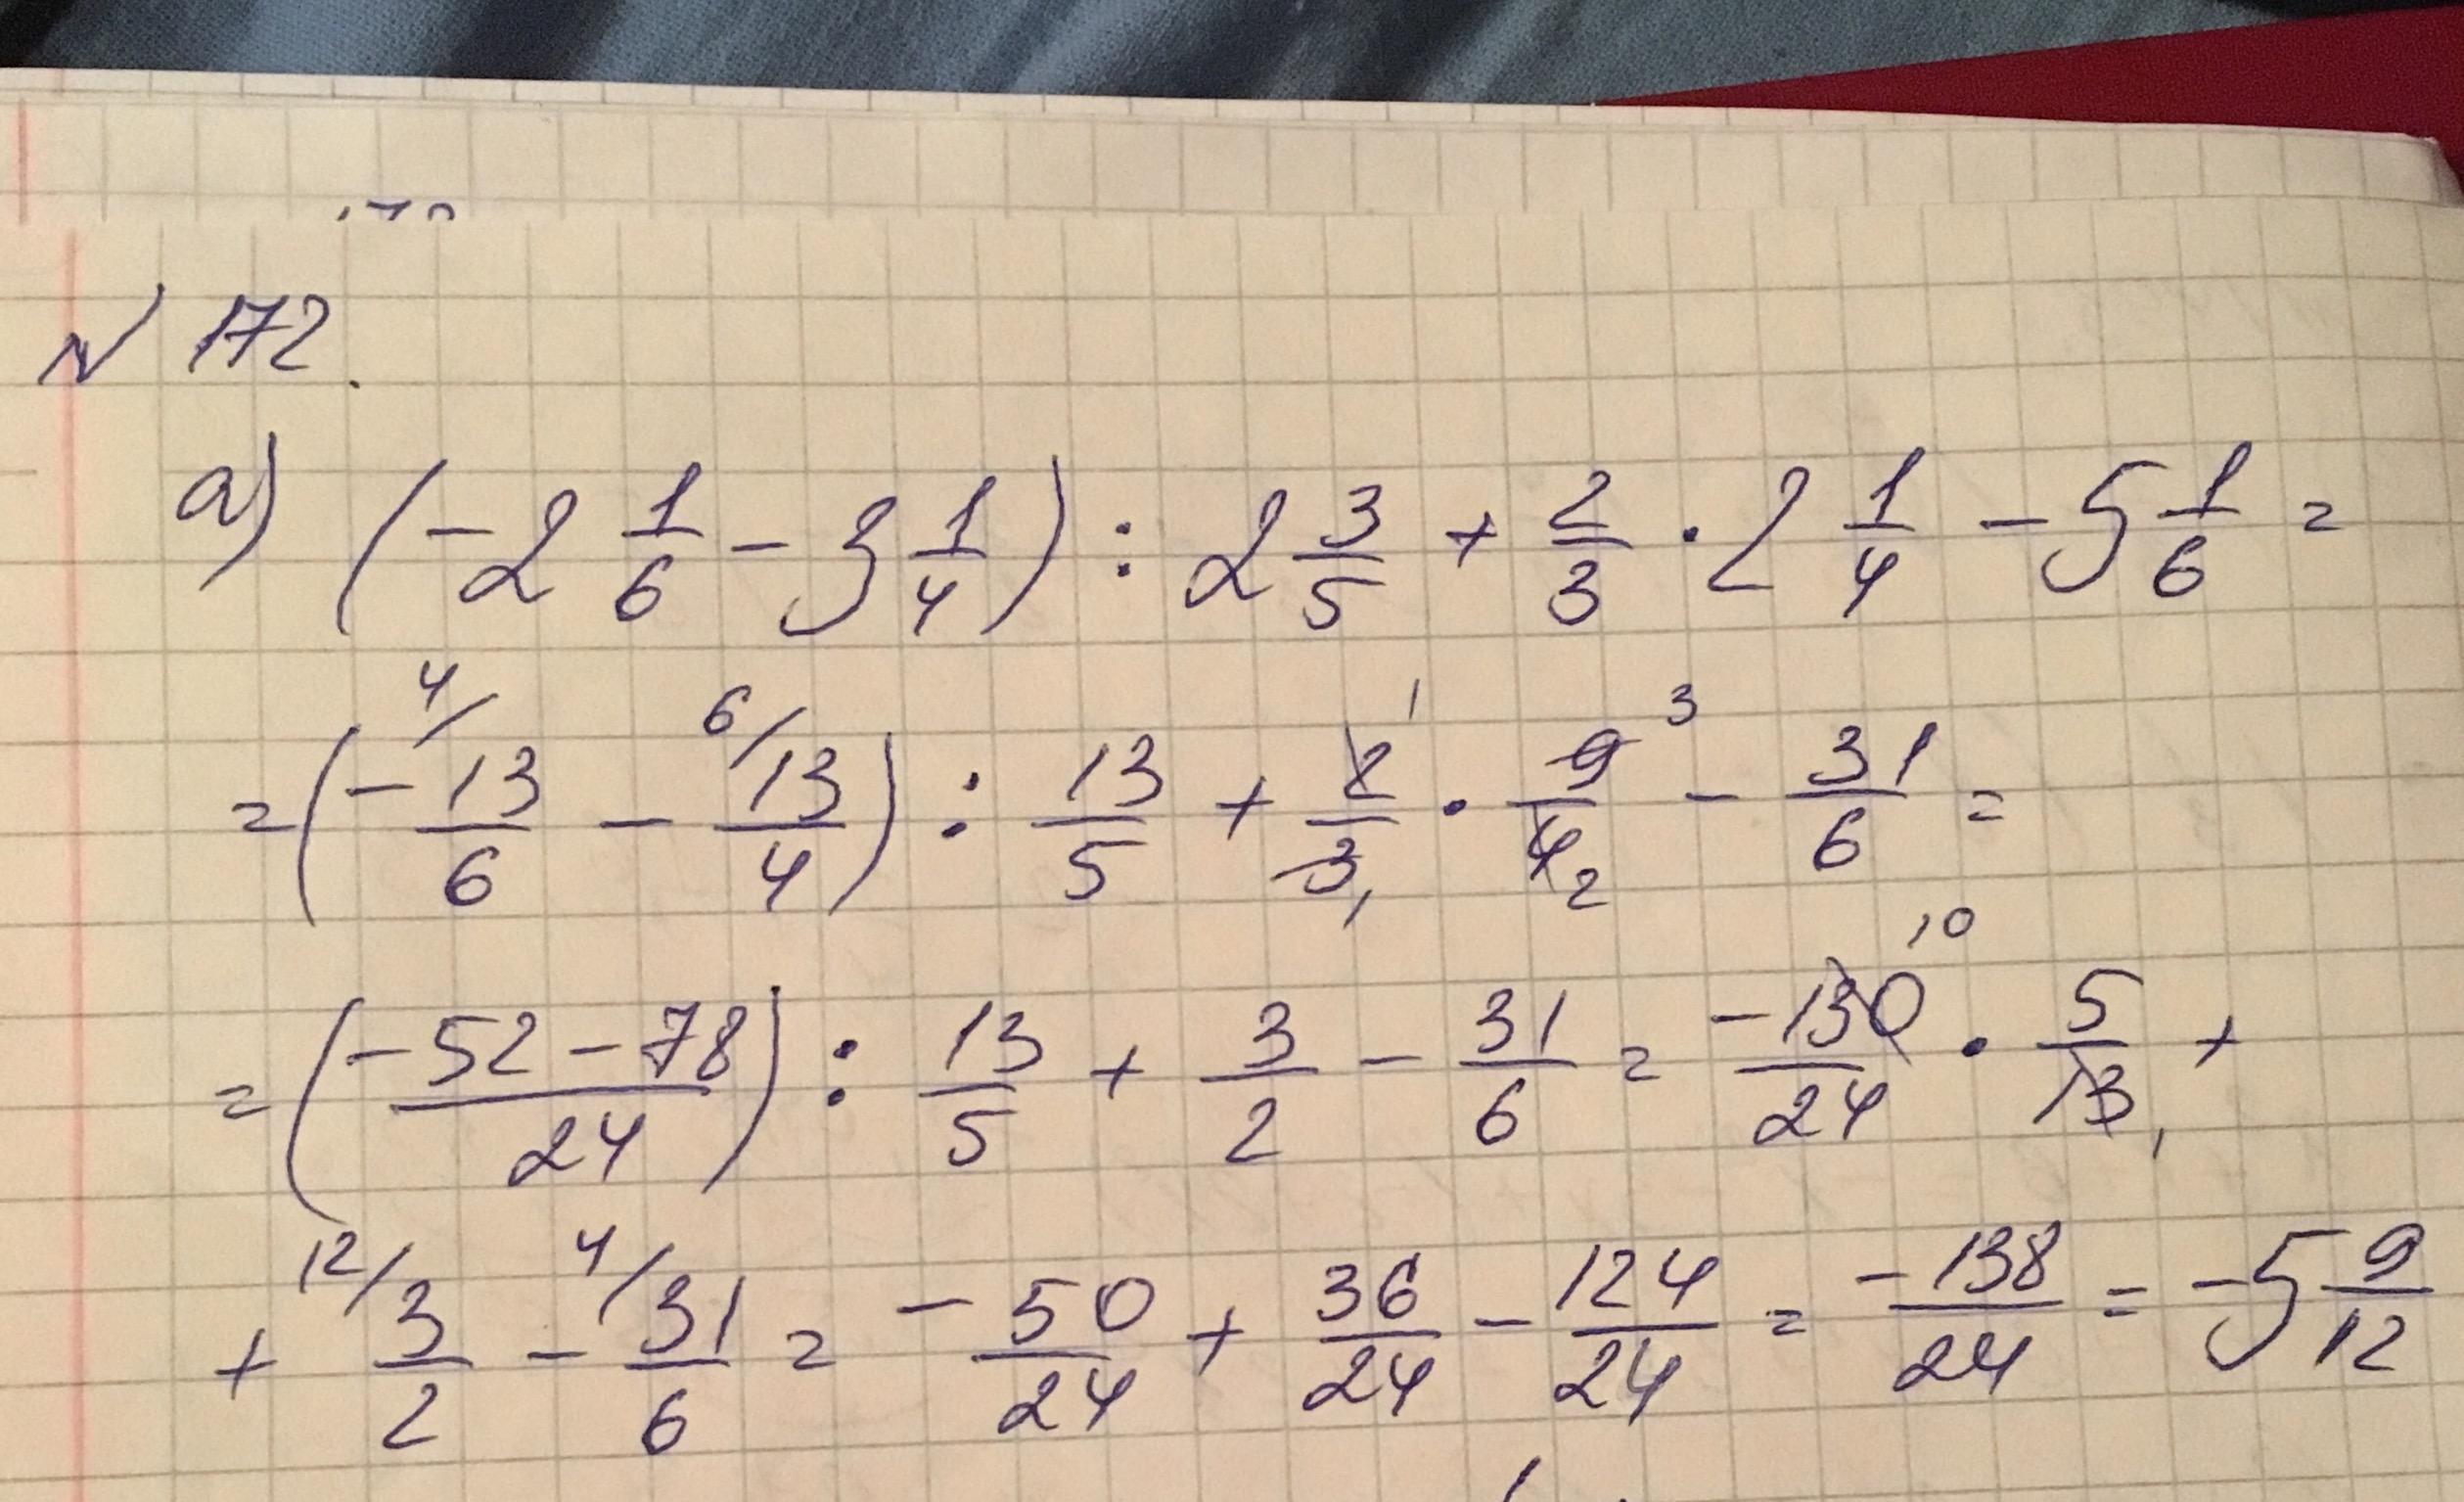 N 172.
а) (-2 1/6 - 3 1/4) : 2 3/5 + 2/3 · 2 1/4 - 5 1/6 =
= (- 4/ 13/6 - 6/ 13/4) : 13/5 + 2 1/3 1 · 9 3/4 2 - 31/6 =
= (-52-78/24) : 13/5 + 3/2 - 31/6 = -130 10/24 · 5/13 1 +
+ 12/ 3/2 - 4/ 31/6 = - 50/24 + 36/24 - 124/24 = -138/24 = -5 9/12